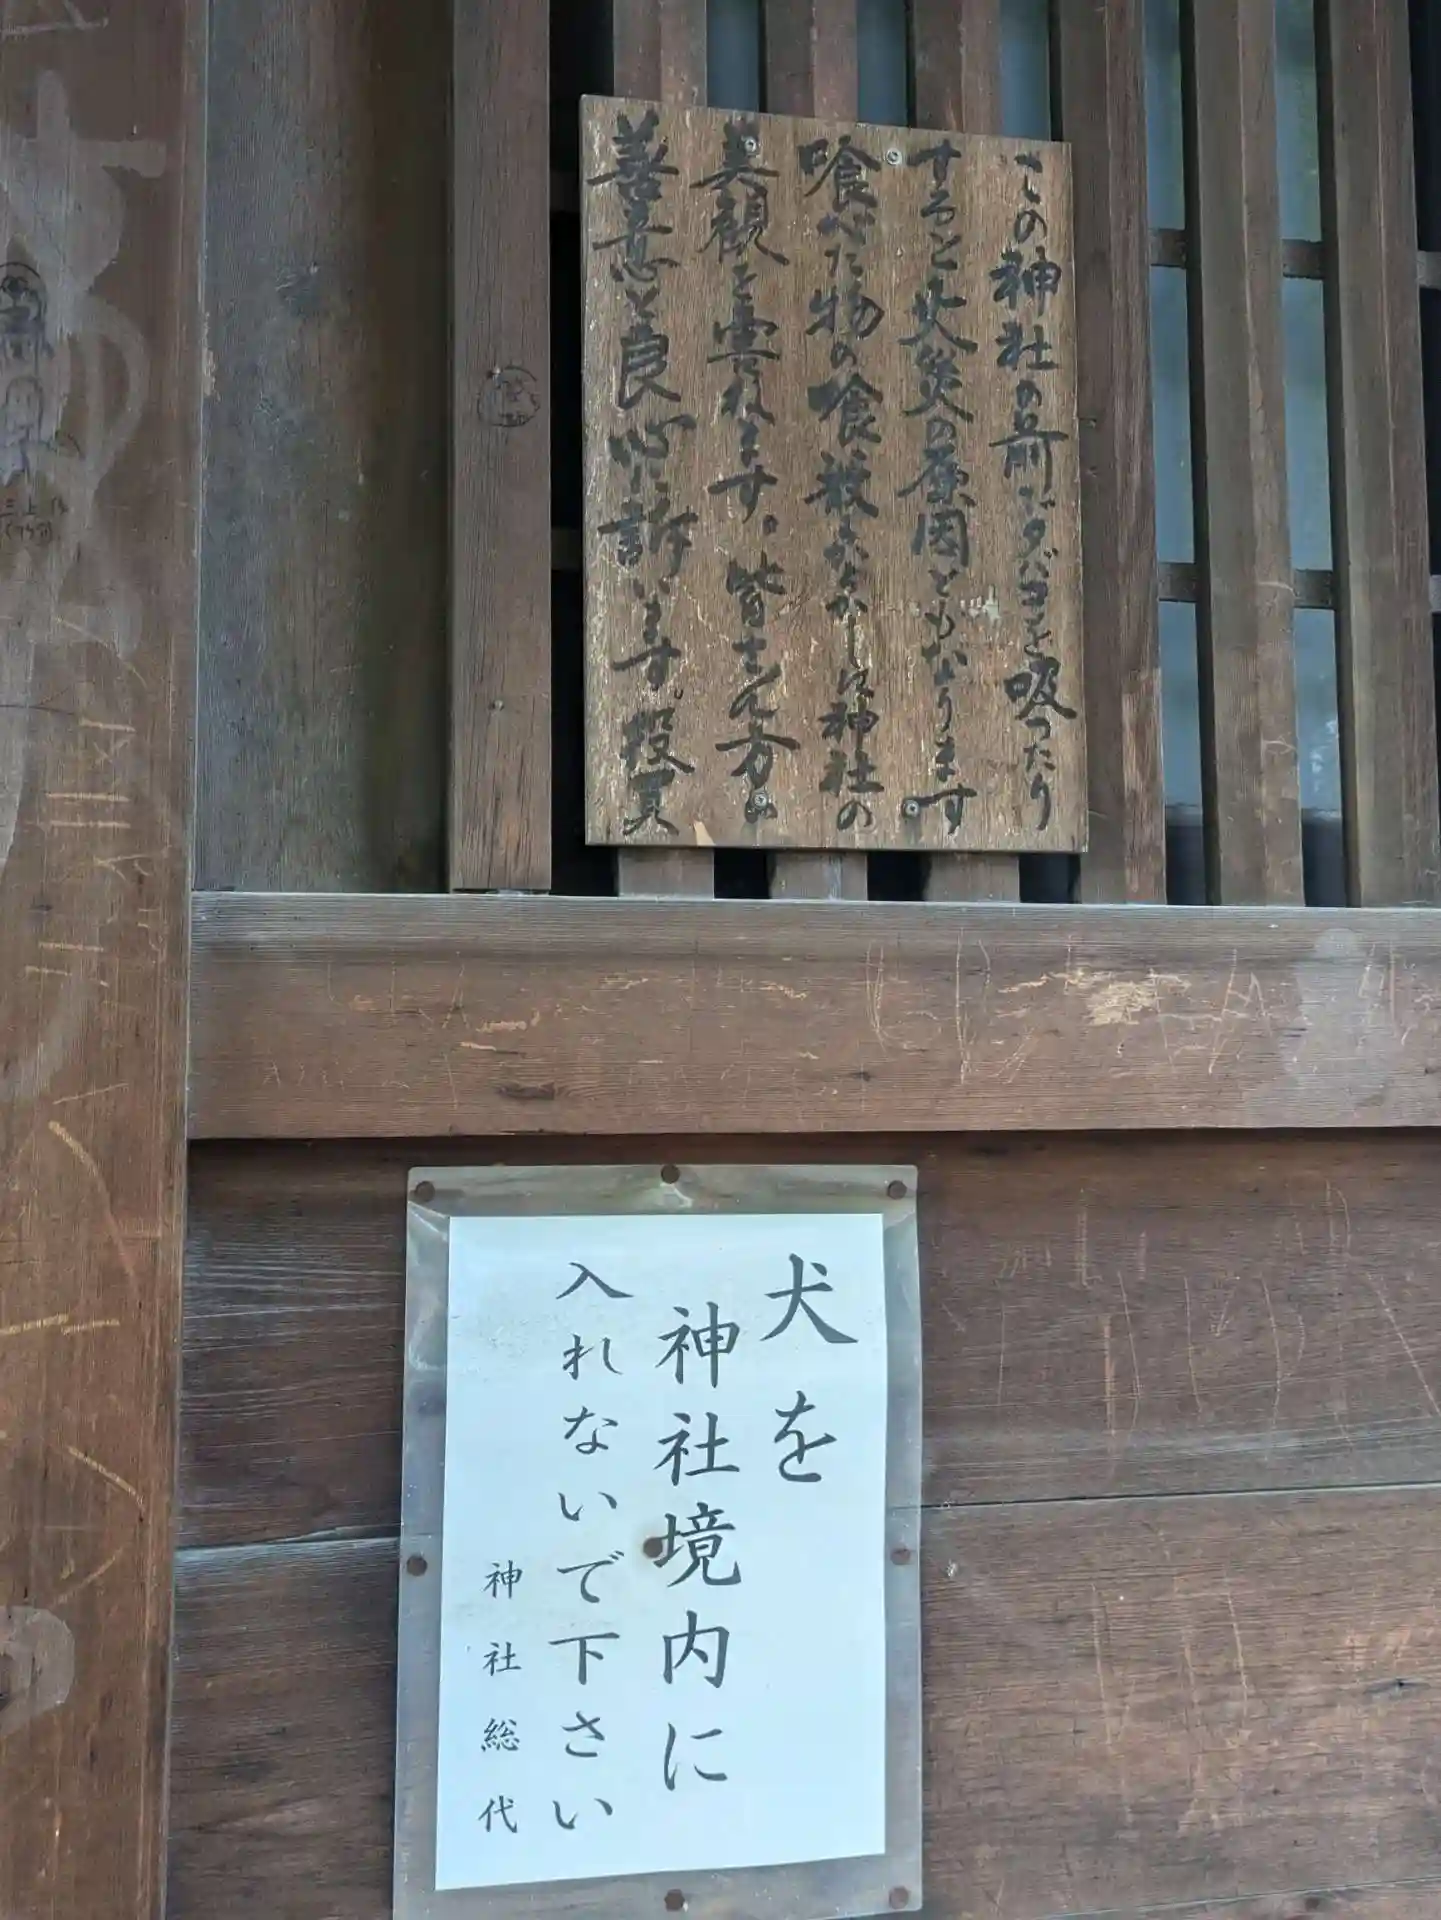 この神社の前でタバコを吸つたり
すると火災の原因ともなります
喰べた物の喰散らかしは神社の
美観を害ねます。皆さん方の
善意と良心に訴います。役員
犬を
神社境内に
入れないで下さい
神社総代